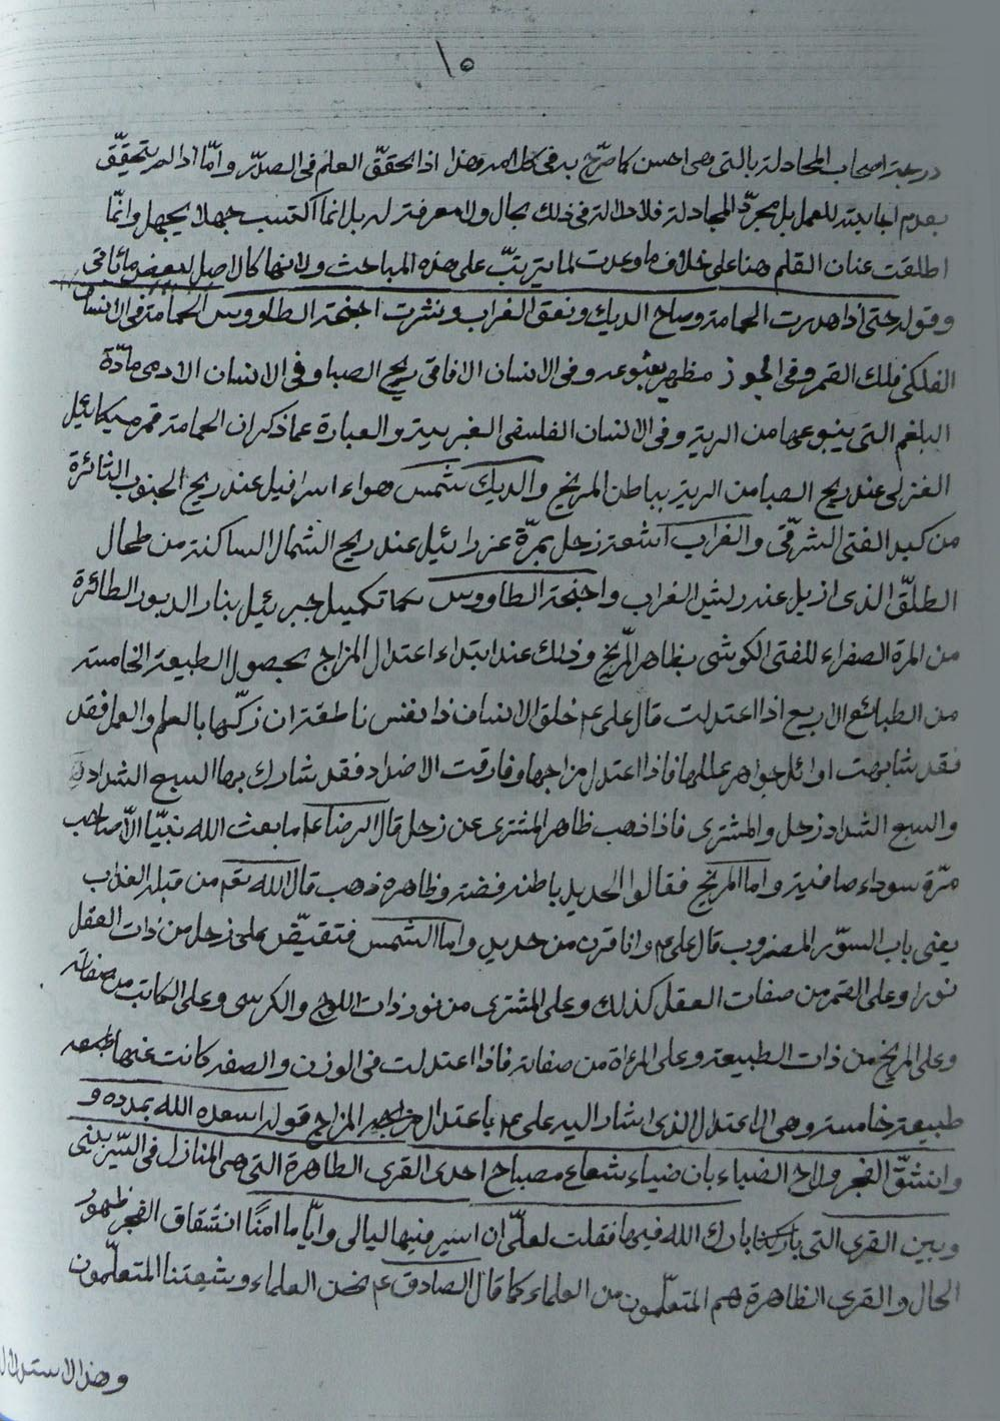 ١٥
درجة اصحاب المجادلة بالتى هى احسن كما صرّح به فى كل امر وهذا اذا تحقّق العلم فى الصدر وامّا اذا لم يتحقّق
بعدم اجابته للعمل بل مجرّد المجادلة فلا دلالة فى ذلك بحال ولا معرفة له بل انما اكتسب جهلا بجهل وانّما
اطلقت عنان القلم هنا على خلاف ما وعدت لما يترتّب على هذه المباحث ولانها كالاصل لبعض ما يأتى
وقوله حتى اذا هدرت الحمامة وصاح الديك ونعق الغراب ونشرت اجنحة الطاووس الحمامة فى الانسان
الفلكى فلك القمر وفى الجوز مظهر ينبوعه وفى الانسان الافاقى ريح الصبا وفى الانسان الادمى مادّة
البلغم التى ينبوعها من الرية وفى الانسان الفلسفى الغربية والعبارة عما ذكر ان الحمامة قمر ميكائيل
الغزلى عند ريح الصبا من الرية بباطن المريخ والديك شمس هواء اسرافيل عند ريح الجنوب الثائرة
من كبد الفتى الشرقى والغراب اشعة زحل بمرّة عزرائيل عند ريح الشمال الساكنة من طحال
الطلّق الذى ازيل عند ريش الغراب واجنحة الطاووس تكميل جبرئيل بنار الدبور الطائرة
من المرة الصفراء للفتى الكوشى بظاهر المرّيخ وذلك عند ابتداء اعتدال المزاج بحصول الطبيعة الخامسة
من الطبائع الاربع اذا اعتدلت قال على ع خلق الانسان ذا نفس ناطقة ان زكّيها بالعلم والعمل فقد
فقد شابهت اوائل جواهر عللها فاذا اعتدل مزاجها وفارقت الاضداد فقد شارك بها السبع الشداد
والسبع الشداد زحل والمشترى فاذا ذهب ظاهر المشترى عن زحل قال الرضا ع ما بعث الله نبيّا الّا صاحب
مرّة سوداء صافية واما المريخ فقالوا الحديد باطنه فضة وظاهره ذهب قال الله تعم من قبله العذاب
يعنى باب السوّر المضروب قال على ع وانا قرن من حديد واما الشمس فتفيض على زحل من ذات العقل
نورا وعلى القمر من صفات العقل كذلك وعلى المشترى من نور ذات اللوح والكرسى وعلى الكاتب من صفاته
وعلى المريخ من ذات الطبيعة وعلى المرأة من صفاته فاذا اعتدلت فى الوزن والصفر كانت عنها
طبيعة خامسة وهى الاعتدال الذى اشار اليه على ع باعتدال المزاج قوله اسعده الله بمدده و
وانشقّ الفجر ولاح الضياء بان ضياء شعاع مصباح احدى القرى الظاهرة التى هى المنازل فى السّير بينى
وبين القرى التى باركنا بارك الله فيها فقلت لعلّى ان اسير فيها ليالى وايّاما امنًا انشقاق الفجر ظهور
الحال والقرى الظاهرة هم المتعلّمون من العلماء كما قال الصادق ع نحن العلماء وشيعتنا المتعلّمون
وهذا الاستدلال